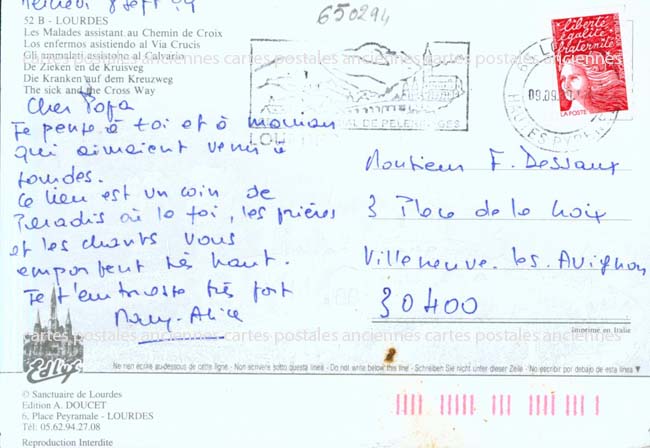 8 Sept 99
650294
52 B - LOURDES
Les Malades assistant au Chemin de Croix
Los enfermos asistiendo al Via Crucis
Gli ammalati assistono al Calvario
De Zieken en de Kruisveg
Die Kranken auf dem Kreuzweg
The sick and the Cross Way
Cher Papa
Je pense à toi et à maman
qui aimaient venir à
Lourdes.
Ce lieu est un coin de
Paradis où la foi, les prières
et les chants vous
emportent très haut.
Je t'embrasse très fort
Mary-Alice
liberté
égalité
fraternité
LA POSTE
09.09
HAUTES PYRENEES
LOU
DE PELERINAGES
Monsieur F. Dessaux
3 Place de la Croix
Villeneuve. les. Avignon
30400
Imprimé en Italie
cartes postales anciennes cartes postales anciennes cartes postales
Ne rien écrire au-dessous de cette ligne - Non scrivere sotto questa linea - Do not write below this line - Schreiben Sie nicht unter dieser Zeile - No escribir por debajo de esta línea
© Sanctuaire de Lourdes
Edition A. DOUCET
6, Place Peyramale - LOURDES
Tél. 05.62.94.27.08
Reproduction Interdite